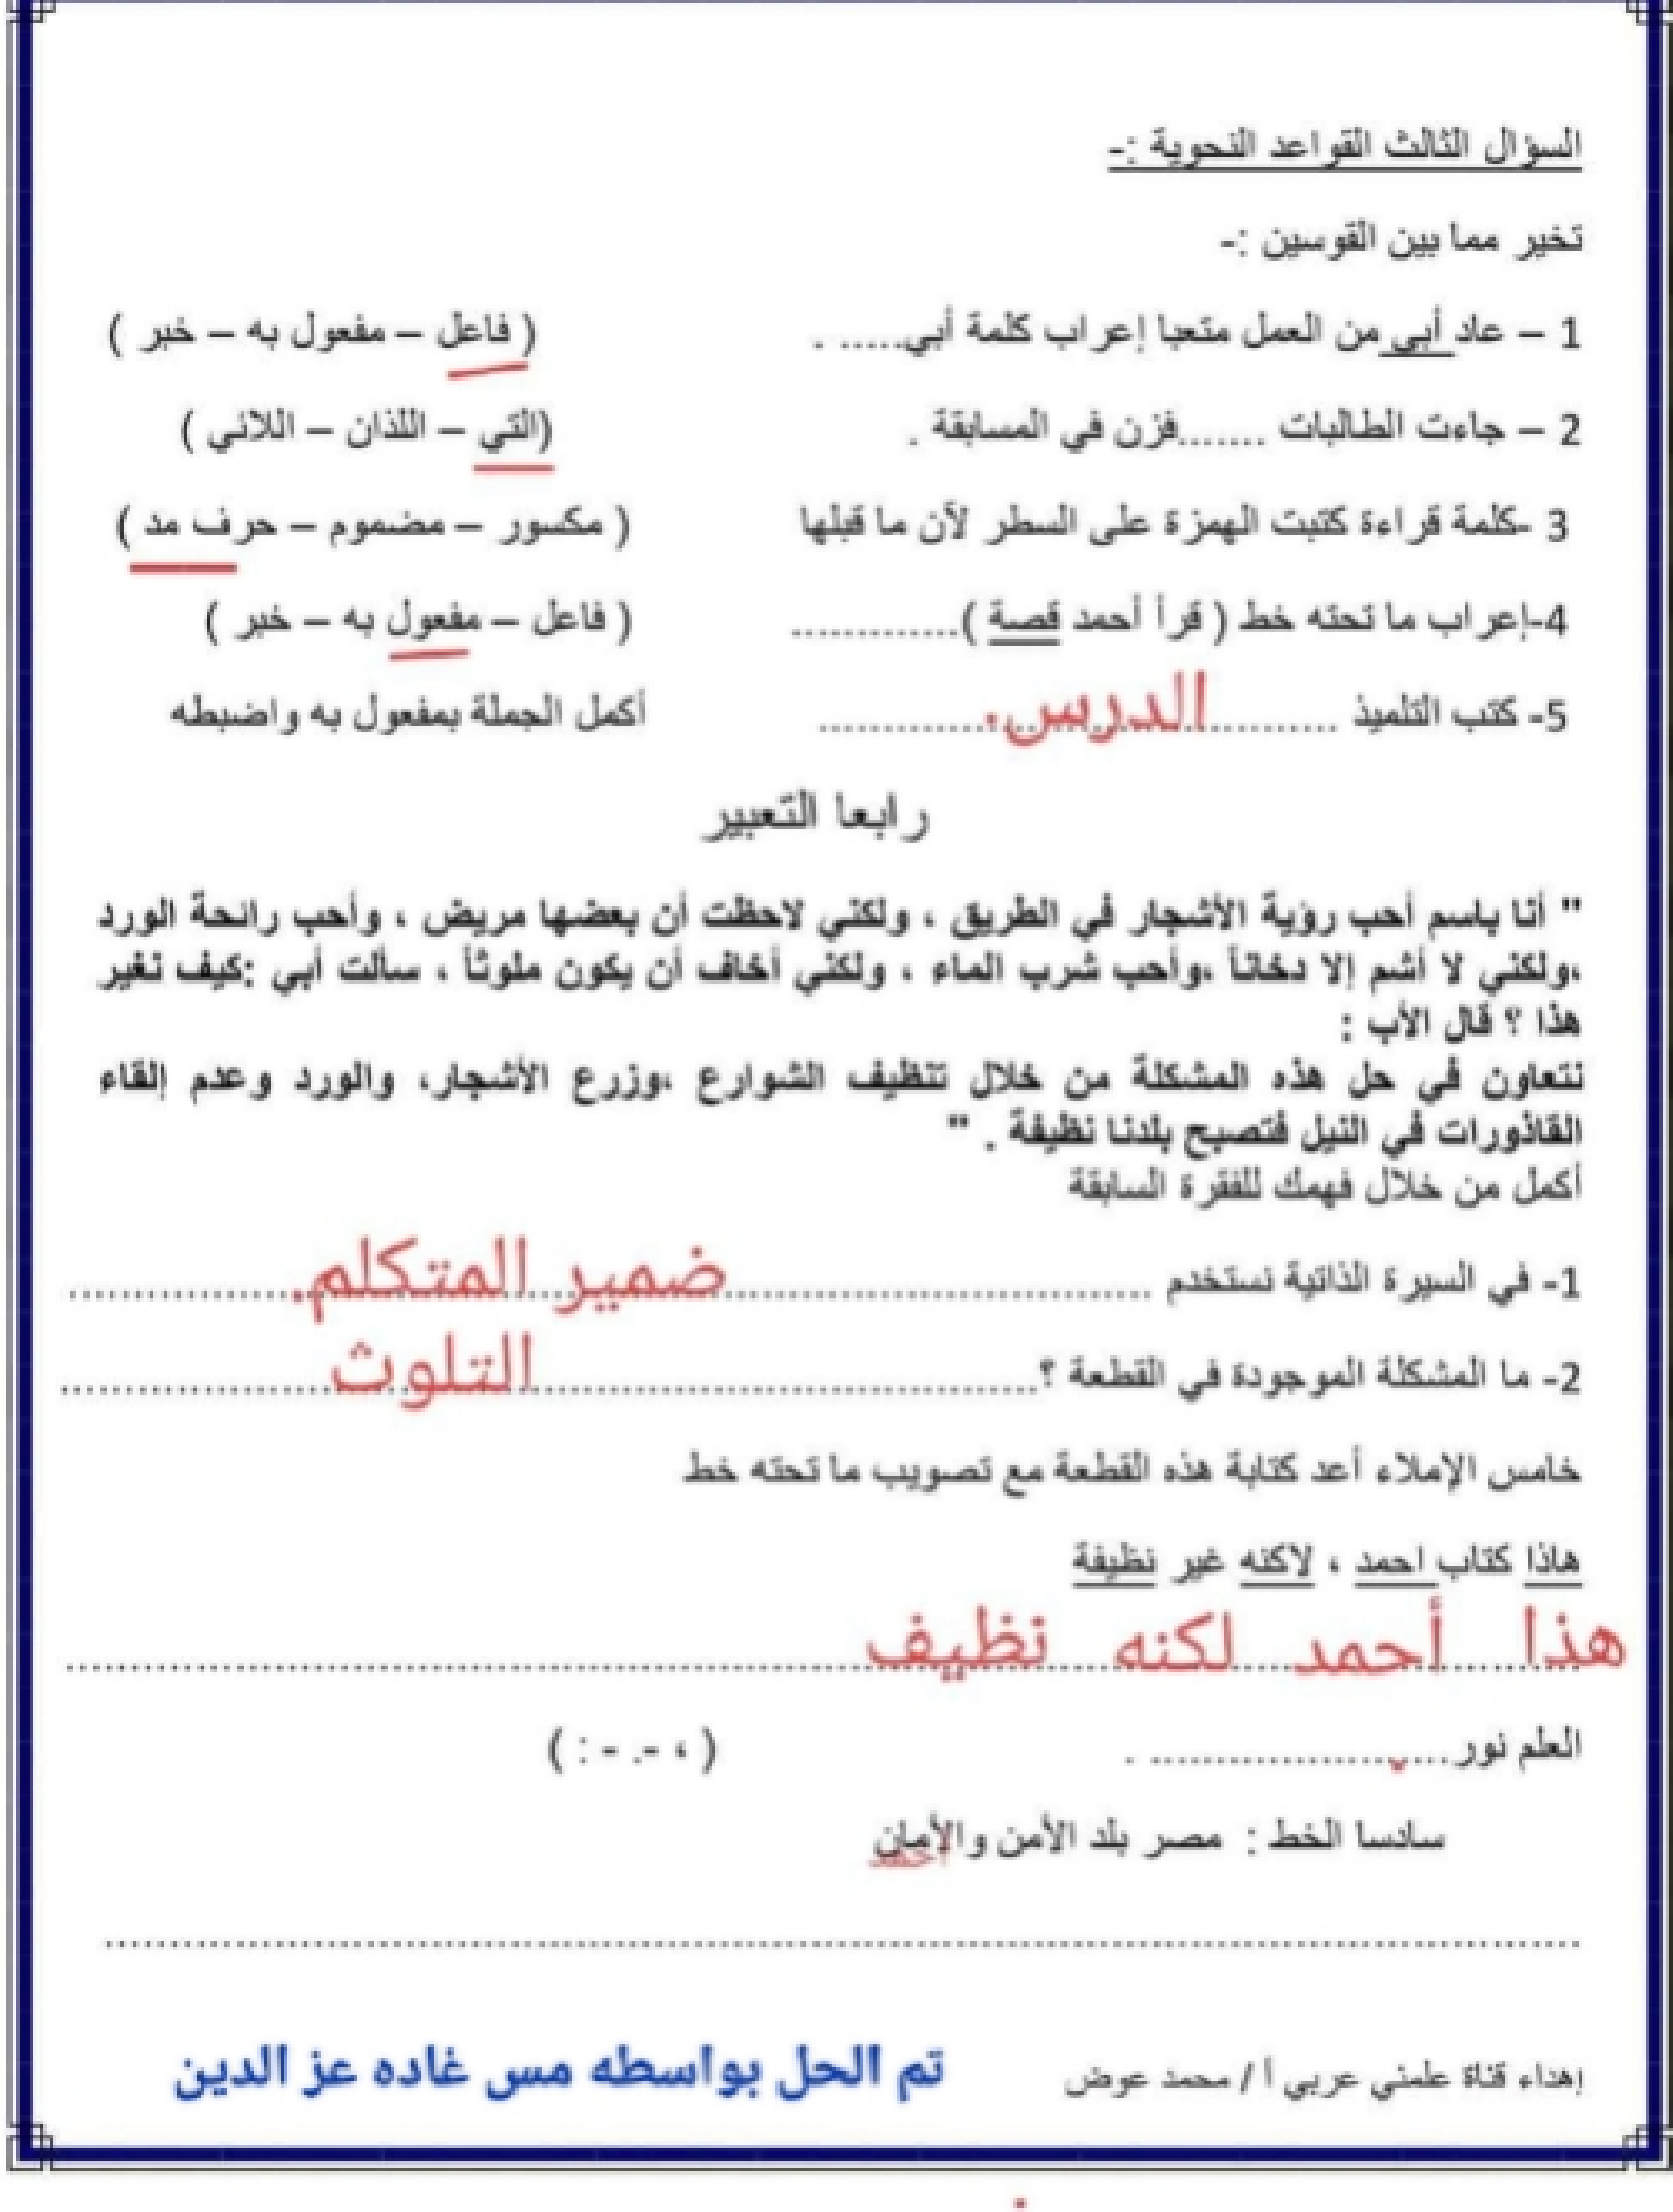 السؤال الثالث القواعد النحوية :-
تخير مما بين القوسين :-
1 – عاد أبي من العمل متعبا إعراب كلمة أبي..... . ( فاعل – مفعول به – خبر )
2 – جاءت الطالبات .......فزن في المسابقة . (التي – اللذان – اللائي )
3 -كلمة قراءة كتبت الهمزة على السطر لأن ما قبلها ( مكسور – مضموم – حرف مد )
4-إعراب ما تحته خط ( قرأ أحمد قصة )............. ( فاعل – مفعول به – خبر )
5- كتب التلميذ ..........الدرس............ أكمل الجملة بمفعول به واضبطه
رابعا التعبير
" أنا باسم أحب رؤية الأشجار في الطريق ، ولكني لاحظت أن بعضها مريض ، وأحب رائحة الورد
،ولكني لا أشم إلا دخاناً ،وأحب شرب الماء ، ولكني أخاف أن يكون ملوثاً ، سألت أبي :كيف نغير
هذا ؟ قال الأب :
نتعاون في حل هذه المشكلة من خلال تنظيف الشوارع ،وزرع الأشجار، والورد وعدم إلقاء
القاذورات في النيل فتصبح بلدنا نظيفة . "
أكمل من خلال فهمك للفقرة السابقة
1- في السيرة الذاتية نستخدم ..........ضمير المتكلم...........
2- ما المشكلة الموجودة في القطعة ؟..........التلوث..........
خامس الإملاء أعد كتابة هذه القطعة مع تصويب ما تحته خط
هاذا كتاب احمد ، لاكنه غير نظيفة
هذا أحمد لكنه نظيف
العلم نور...................... . ( ، -. - : )
سادسا الخط : مصر بلد الأمن والأمان
إهداء قناة علمني عربي أ / محمد عوض تم الحل بواسطه مس غاده عز الدين